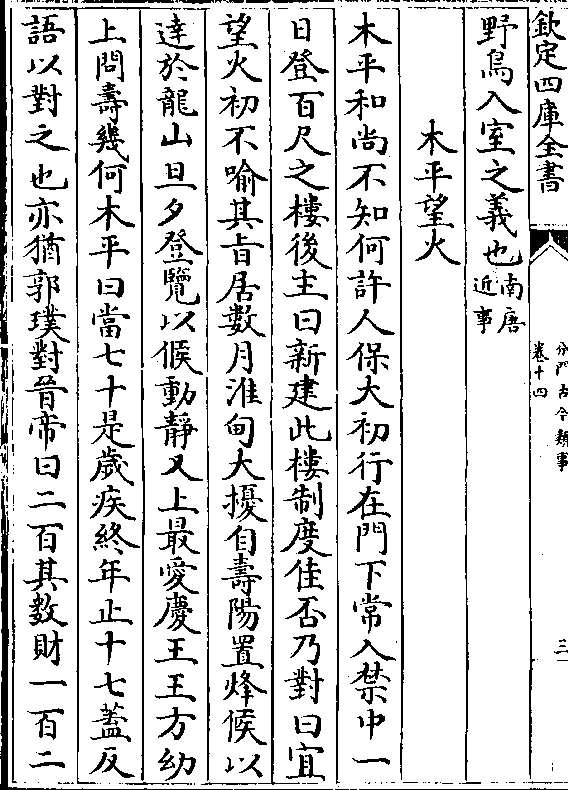 欽定四庫全書
分門古今類事
卷十四
三
野鳥入室之義也南唐近事
木平望火
木平和尚不知何許人保大初行在門下常入禁中一
日登百尺之樓後主曰新建此樓制度佳否乃對曰宜
望火初不喻其旨居數月淮甸大擾自壽陽置烽候以
達於龍山旦夕登覽以候動靜又上最愛慶王王方幼
上問壽幾何木平曰當七十是歲疾終年止十七蓋反
語以對之也亦猶郭璞對晉帝曰二百其數財一百二